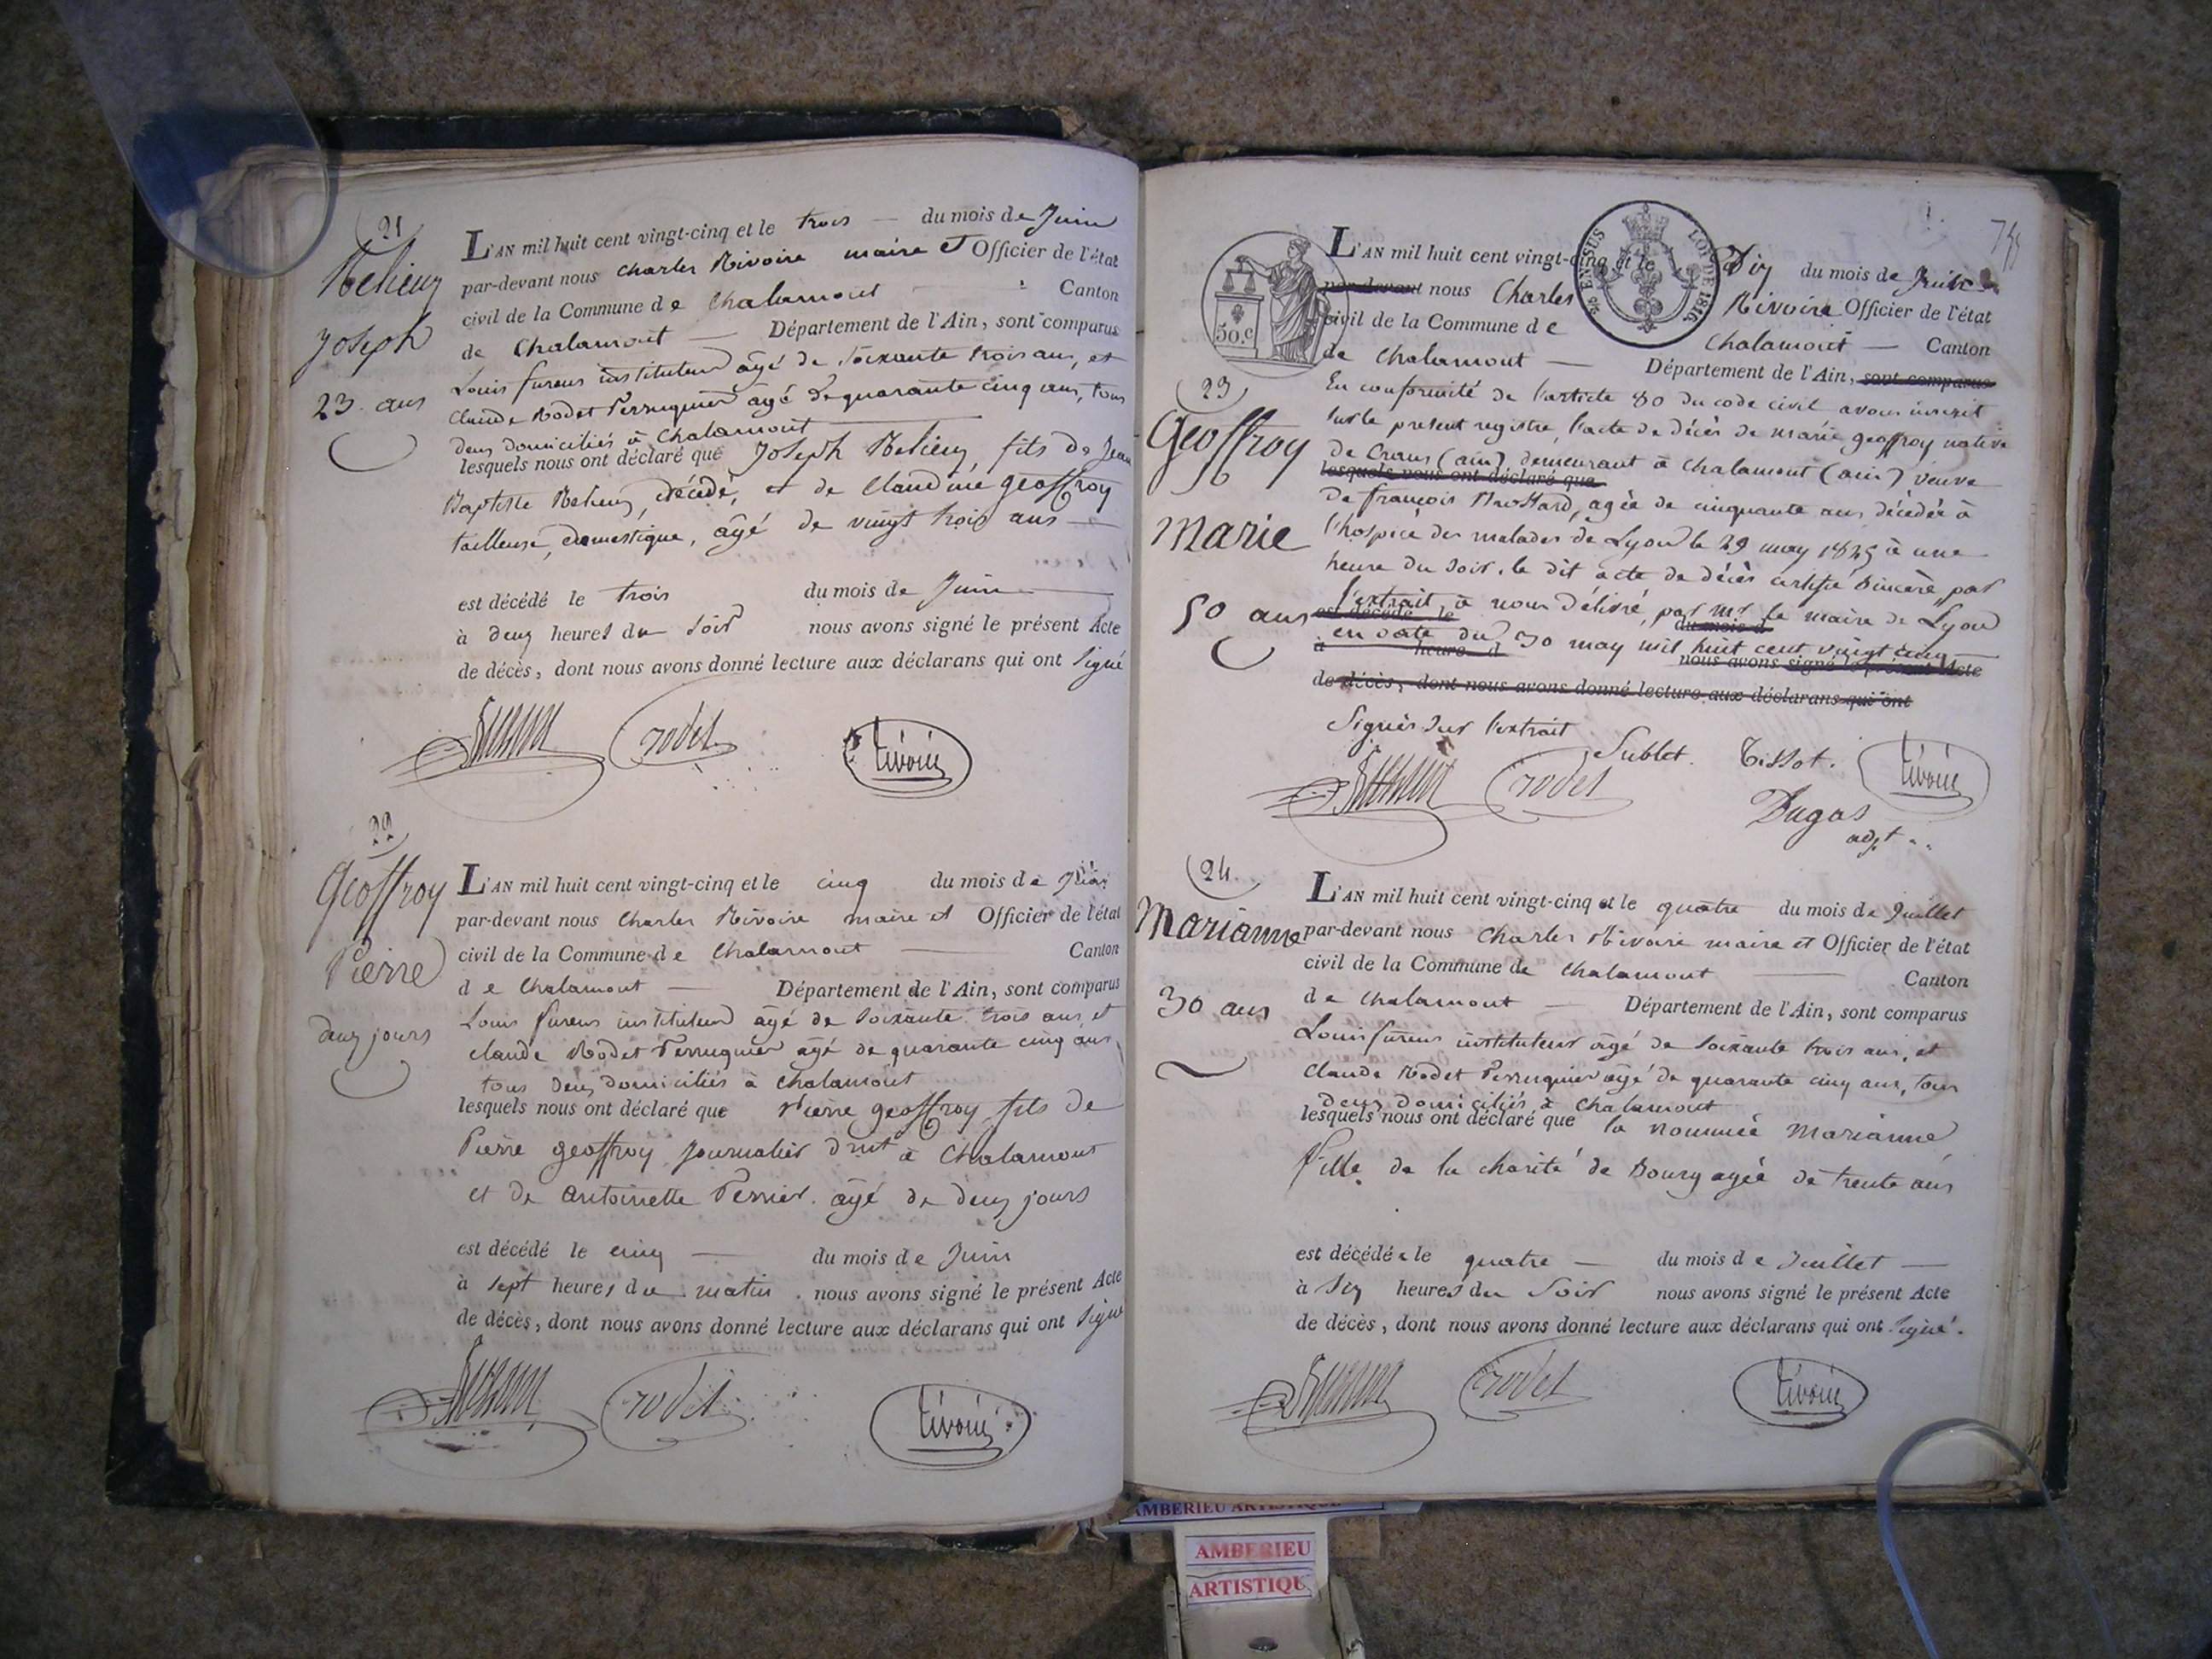 21
Joseph
23 ans
L'AN mil huit cent vingt-cinq et le trois du mois de Juin
par-devant nous Charles Rivoire maire et Officier de l'état
civil de la Commune de Chalamont Canton
de Chalamont Département de l'Ain, sont comparus
Louis fureus instituteur âgé de soixante trois ans, et
Claude Rodet Perruquier âgé de quarante cinq ans, tous
deux domiciliés à Chalamont
lesquels nous ont déclaré que Joseph fils de Jean
Baptiste décédé, et de Claudine Geoffroy
tailleuse, domestique, âgé de vingt trois ans
est décédé le trois du mois de Juin
à deux heures du soir nous avons signé le présent Acte
de décès, dont nous avons donné lecture aux déclarans qui ont signé
rodet
22
Geoffroy
Pierre
deux jours
L'AN mil huit cent vingt-cinq et le cinq du mois de Juin
par-devant nous Charles Rivoire maire et Officier de l'état
civil de la Commune de Chalamont Canton
de Chalamont Département de l'Ain, sont comparus
Louis fureus instituteur âgé de soixante trois ans, et
Claude Rodet Perruquier âgé de quarante cinq ans
tous deux domiciliés à Chalamont
lesquels nous ont déclaré que Pierre geoffroy fils de
Pierre geoffroy journalier dmt à Chalamont
et de Antoinette Perrier. âgé de deux jours
est décédé le cinq du mois de Juin
à sept heures du matin. nous avons signé le présent Acte
de décès, dont nous avons donné lecture aux déclarans qui ont signé
rodet
50.c
LOI DE 1816
23
Geoffroy
Marie
50 ans
L'AN mil huit cent vingt-cinq et le Dix du mois de Juin
par-devant nous Charles Rivoire Officier de l'état
civil de la Commune de Chalamont Canton
de Chalamont Département de l'Ain, sont comparus
En conformité de l'article 80 du code civil avons inscrit
sur le present registre, l'acte de décès de marie geoffroy native
de Crans (ain) demeurant à Chalamont (ain) veuve
lesquels nous ont déclaré que
de françois agée de cinquante ans décédée à
l'hospice des malades de Lyon le 29 may 1825 à une
heure du soir. le dit acte de décès certifié sincère par
l'extrait à nous délivré, par mr le maire de Lyon
est décédé le du mois d
en date du 30 may mil huit cent vingt cinq
à heure d nous avons signé le présent Acte
de décès, dont nous avons donné lecture aux déclarans qui ont
Signés sur l'extrait
Sublet. Tissot.
rodet
Dugas
adjt
24
Marianne
30 ans
L'AN mil huit cent vingt-cinq et le quatre du mois de Juillet
par-devant nous Charles Rivoire maire et Officier de l'état
civil de la Commune de Chalamont Canton
de Chalamont Département de l'Ain, sont comparus
Louis fureus instituteur âgé de soixante trois ans, et
Claude Rodet Perruquier âgé de quarante cinq ans, tous
deux domiciliés à Chalamont
lesquels nous ont déclaré que la nommée Marianne
fille de la charité de Bourg agée de trente ans
est décédée le quatre du mois de Juillet
à six heures du Soir nous avons signé le présent Acte
de décès, dont nous avons donné lecture aux déclarans qui ont signé.
rodet
AMBERIEU ARTISTIQUE
AMBERIEU
ARTISTIQU